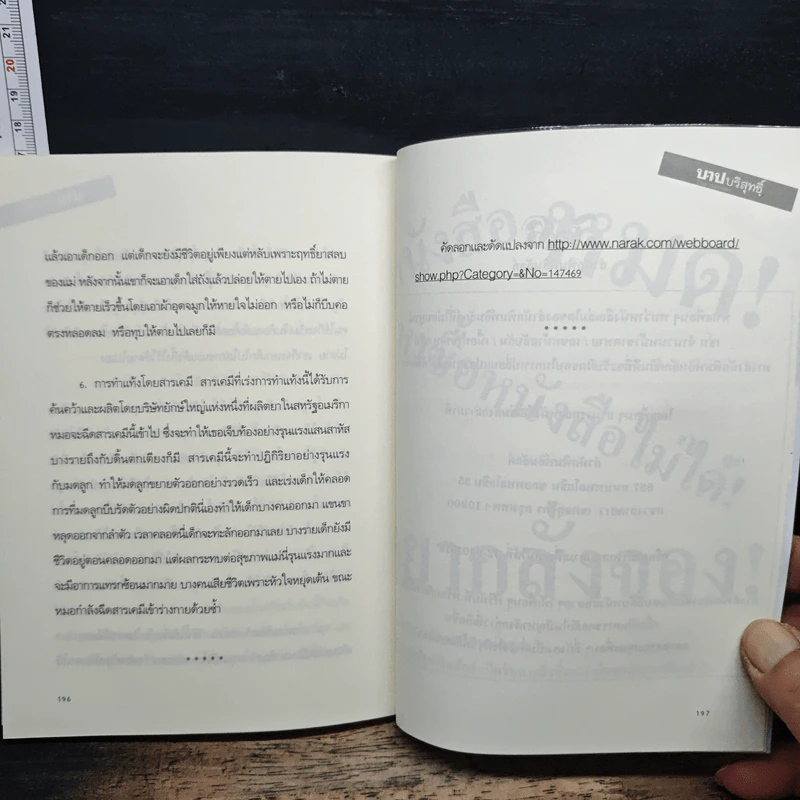 แล้วเอาเด็กออก แต่เด็กจะยังมีชีวิตอยู่เพียงแต่หลับเพราะฤทธิ์ยาสลบ
ของแม่ หลังจากนั้นเขาก็จะเอาเด็กใส่ถังแล้วปล่อยให้ตายไปเอง ถ้าไม่ตาย
ก็ช่วยให้ตายเร็วขึ้นโดยเอาผ้าอุดจมูกให้หายใจไม่ออก หรือไม่ก็บีบคอ
ตรงหลอดลม หรือทุบให้ตายไปเลยก็มี
6. การทำแท้งโดยสารเคมี สารเคมีที่เร่งการทำแท้งนี้ได้รับการ
ค้นคว้าและผลิตโดยบริษัทยักษ์ใหญ่แห่งหนึ่งที่ผลิตยาในสหรัฐอเมริกา
หมอจะฉีดสารเคมีนี้เข้าไป ซึ่งจะทำให้เธอเจ็บท้องอย่างรุนแรงแสนสาหัส
บางรายถึงกับดิ้นตกเตียงก็มี สารเคมีนี้จะทำปฏิกิริยาอย่างรุนแรง
กับมดลูก ทำให้มดลูกขยายตัวออกอย่างรวดเร็ว และเร่งเด็กให้คลอด
การที่มดลูกบีบรัดตัวอย่างผิดปกตินี้เองทำให้เด็กบางคนออกมา แขนขา
หลุดออกจากลำตัว เวลาคลอดนี่เด็กจะทะลักออกมาเลย บางรายเด็กยังมี
ชีวิตอยู่ตอนคลอดออกมา แต่ผลกระทบต่อสุขภาพแม่นี่รุนแรงมากและ
จะมีอาการแทรกซ้อนมากมาย บางคนเสียชีวิตเพราะหัวใจหยุดเต้น ขณะ
หมอกำลังฉีดสารเคมีเข้าร่างกายด้วยซ้ำ
196
บาปบริสุทธิ์
คัดลอกและดัดแปลงจาก http://www.narak.com/webboard/
show.php?Category=&No=147469
197
21
20
19
18
17